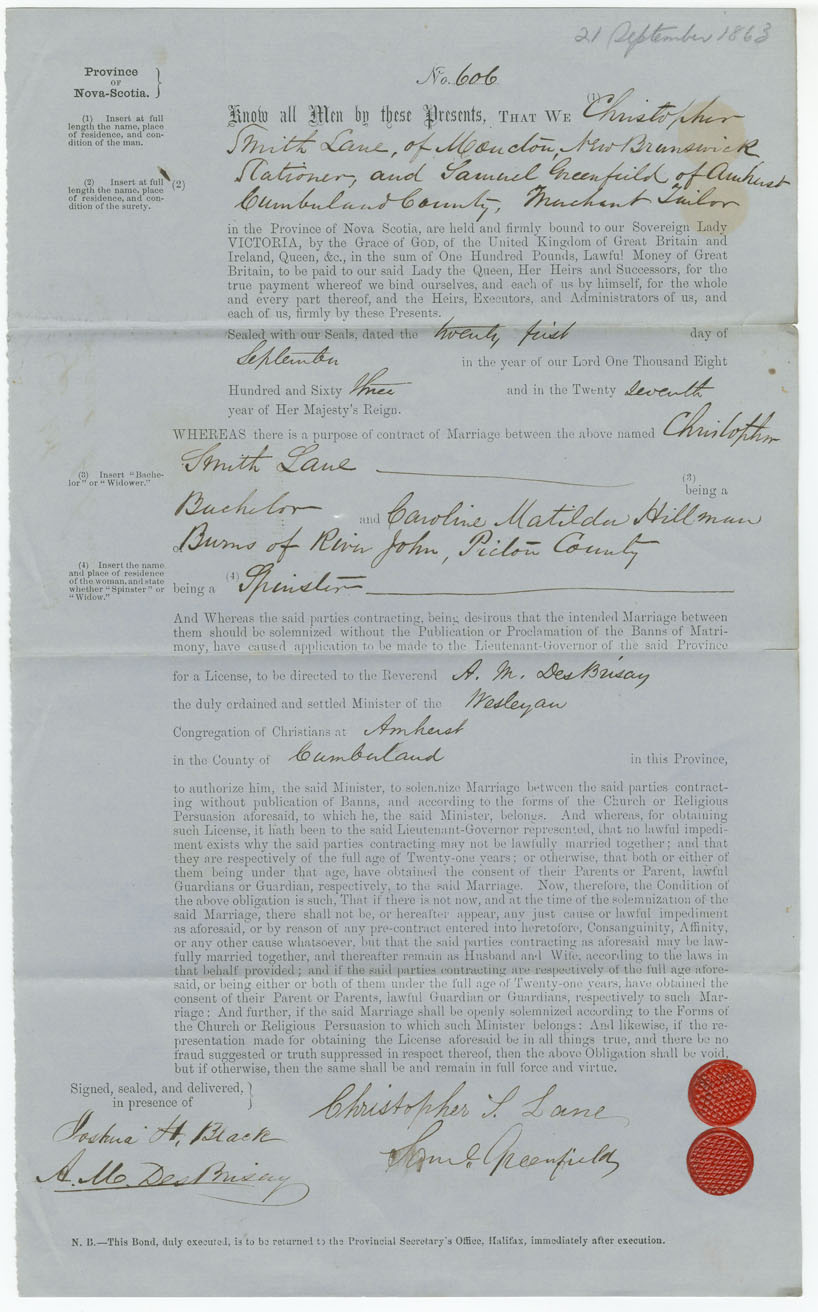 21 September 1863
Province
OF
Nova-Scotia.
No. 606
(1) Insert at full
length the name, place
of residence, and con-
dition of the man.
(2) Insert at full
length the name, place
of residence, and con-
dition of the surety.
Know all Men by these Presents, THAT WE (1) Christopher
Smith Lane, of Moncton, New Brunswick
(2) Stationer, and Samuel Greenfield of Amherst
Cumberland County, Merchant Tailor
in the Province of Nova Scotia, are held and firmly bound to our Sovereign Lady
VICTORIA, by the Grace of GOD, of the United Kingdom of Great Britain and
Ireland, Queen, &c., in the sum of One Hundred Pounds, Lawful Money of Great
Britain, to be paid to our said Lady the Queen, Her Heirs and Successors, for the
true payment whereof we bind ourselves, and each of us by himself, for the whole
and every part thereof, and the Heirs, Executors, and Administrators of us, and
each of us, firmly by these Presents.
Sealed with our Seals, dated the twenty first day of
September in the year of our Lord One Thousand Eight
Hundred and Sixty three and in the Twenty seventh
year of Her Majesty's Reign.
WHEREAS there is a purpose of contract of Marriage between the above named Christopher
Smith Lane
(3) Insert "Bache-
lor" or "Widower."
(3)
being a
Bachelor and Caroline Matilda Hillman
of Burns of River John, Pictou County
(4) Insert the name
and place of residence
of the woman, and state
whether "Spinster" or
"Widow."
being a (4) Spinster
And Whereas the said parties contracting, being desirous that the intended Marriage between
them should be solemnized without the Publication or Proclamation of the Banns of Matri-
mony, have caused application to be made to the Lieutenant-Governor of the said Province
for a License, to be directed to the Reverend A. M. DesBrisay
the duly ordained and settled Minister of the Wesleyan
Congregation of Christians at Amherst
in the County of Cumberland in this Province,
to authorize him, the said Minister, to solemnize Marriage between the said parties contract-
ing without publication of Banns, and according to the forms of the Church or Religious
Persuasion aforesaid, to which he, the said Minister, belongs. And whereas, for obtaining
such License, it hath been to the said Lieutenant-Governor represented, that no lawful impedi-
ment exists why the said parties contracting may not be lawfully married together; and that
they are respectively of the full age of Twenty-one years; or otherwise, that both or either of
them being under that age, have obtained the consent of their Parents or Parent, lawful
Guardians or Guardian, respectively, to the said Marriage. Now, therefore, the Condition of
the above obligation is such, That if there is not now, and at the time of the solemnization of the
said Marriage, there shall not be, or hereafter appear, any just cause or lawful impediment
as aforesaid, or by reason of any pre-contract entered into heretofore, Consanguinity, Affinity,
or any other cause whatsoever, but that the said parties contracting as aforesaid may be law-
fully married together, and thereafter remain as Husband and Wife, according to the laws in
that behalf provided; and if the said parties contracting are respectively of the full age afore-
said, or being either or both of them under the full age of Twenty-one years, have obtained the
consent of their Parent or Parents, lawful Guardian or Guardians, respectively to such Mar-
riage: And further, if the said Marriage shall be openly solemnized according to the Forms of
the Church or Religious Persuasion to which such Minister belongs: And likewise, if the re-
presentation made for obtaining the License aforesaid be in all things true, and there be no
fraud suggested or truth suppressed in respect thereof, then the above Obligation shall be void,
but if otherwise, then the same shall be and remain in full force and virtue.
Signed, sealed, and delivered,
in presence of
Christopher S. Lane
Joshua H. Black
Saml. Greenfield
A. M. DesBrisay
N. B.—This Bond, duly executed, is to be returned to the Provincial Secretary's Office, Halifax, immediately after execution.